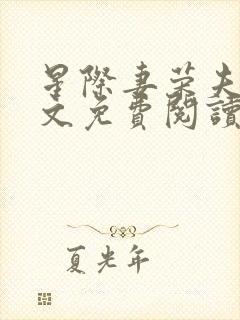 星際妻榮夫
文免費閱讀
夏光年